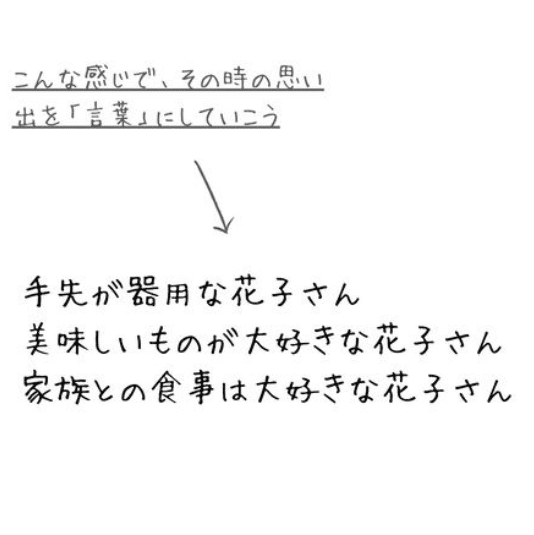 こんな感じで、その時の思い
出を「言葉」にしていこう
手先が器用な花子さん
美味しいものが大好きな花子さん
家族との食事は大好きな花子さん